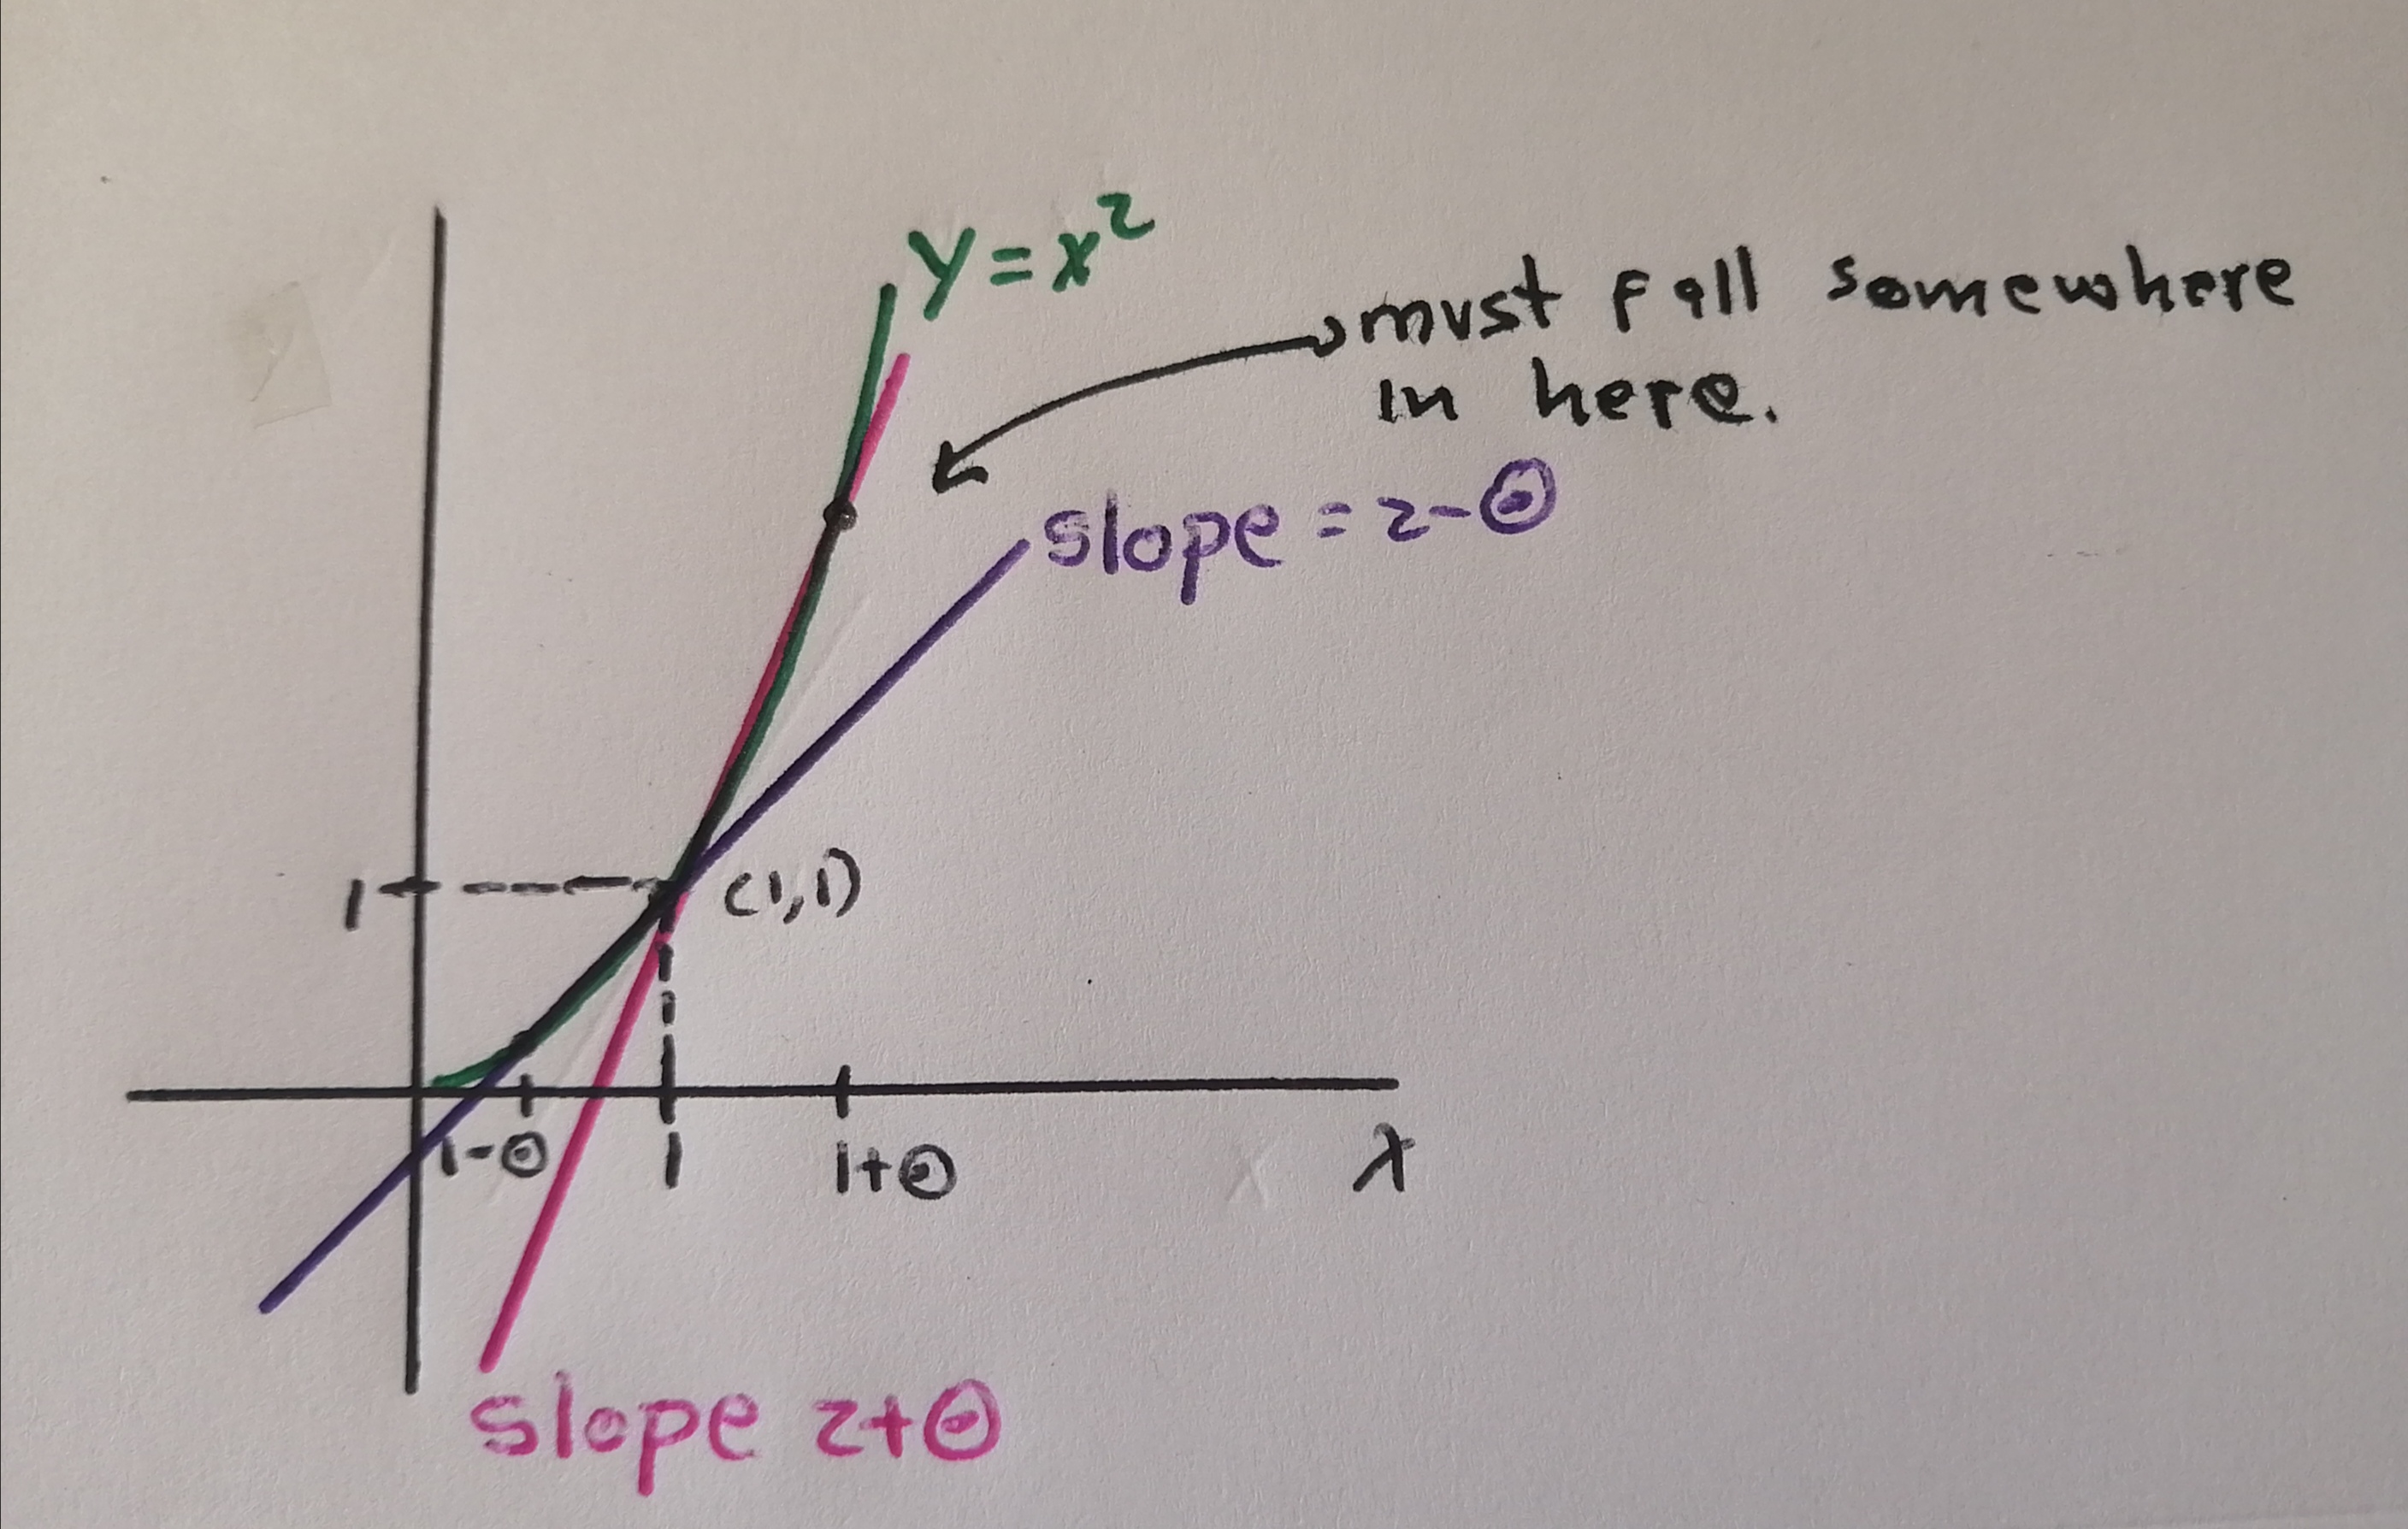 y=x²
must fall somewhere
in here.
slope=2-⊙
1
(1,1)
1-⊙
1
1+⊙
x
slope 2+⊙